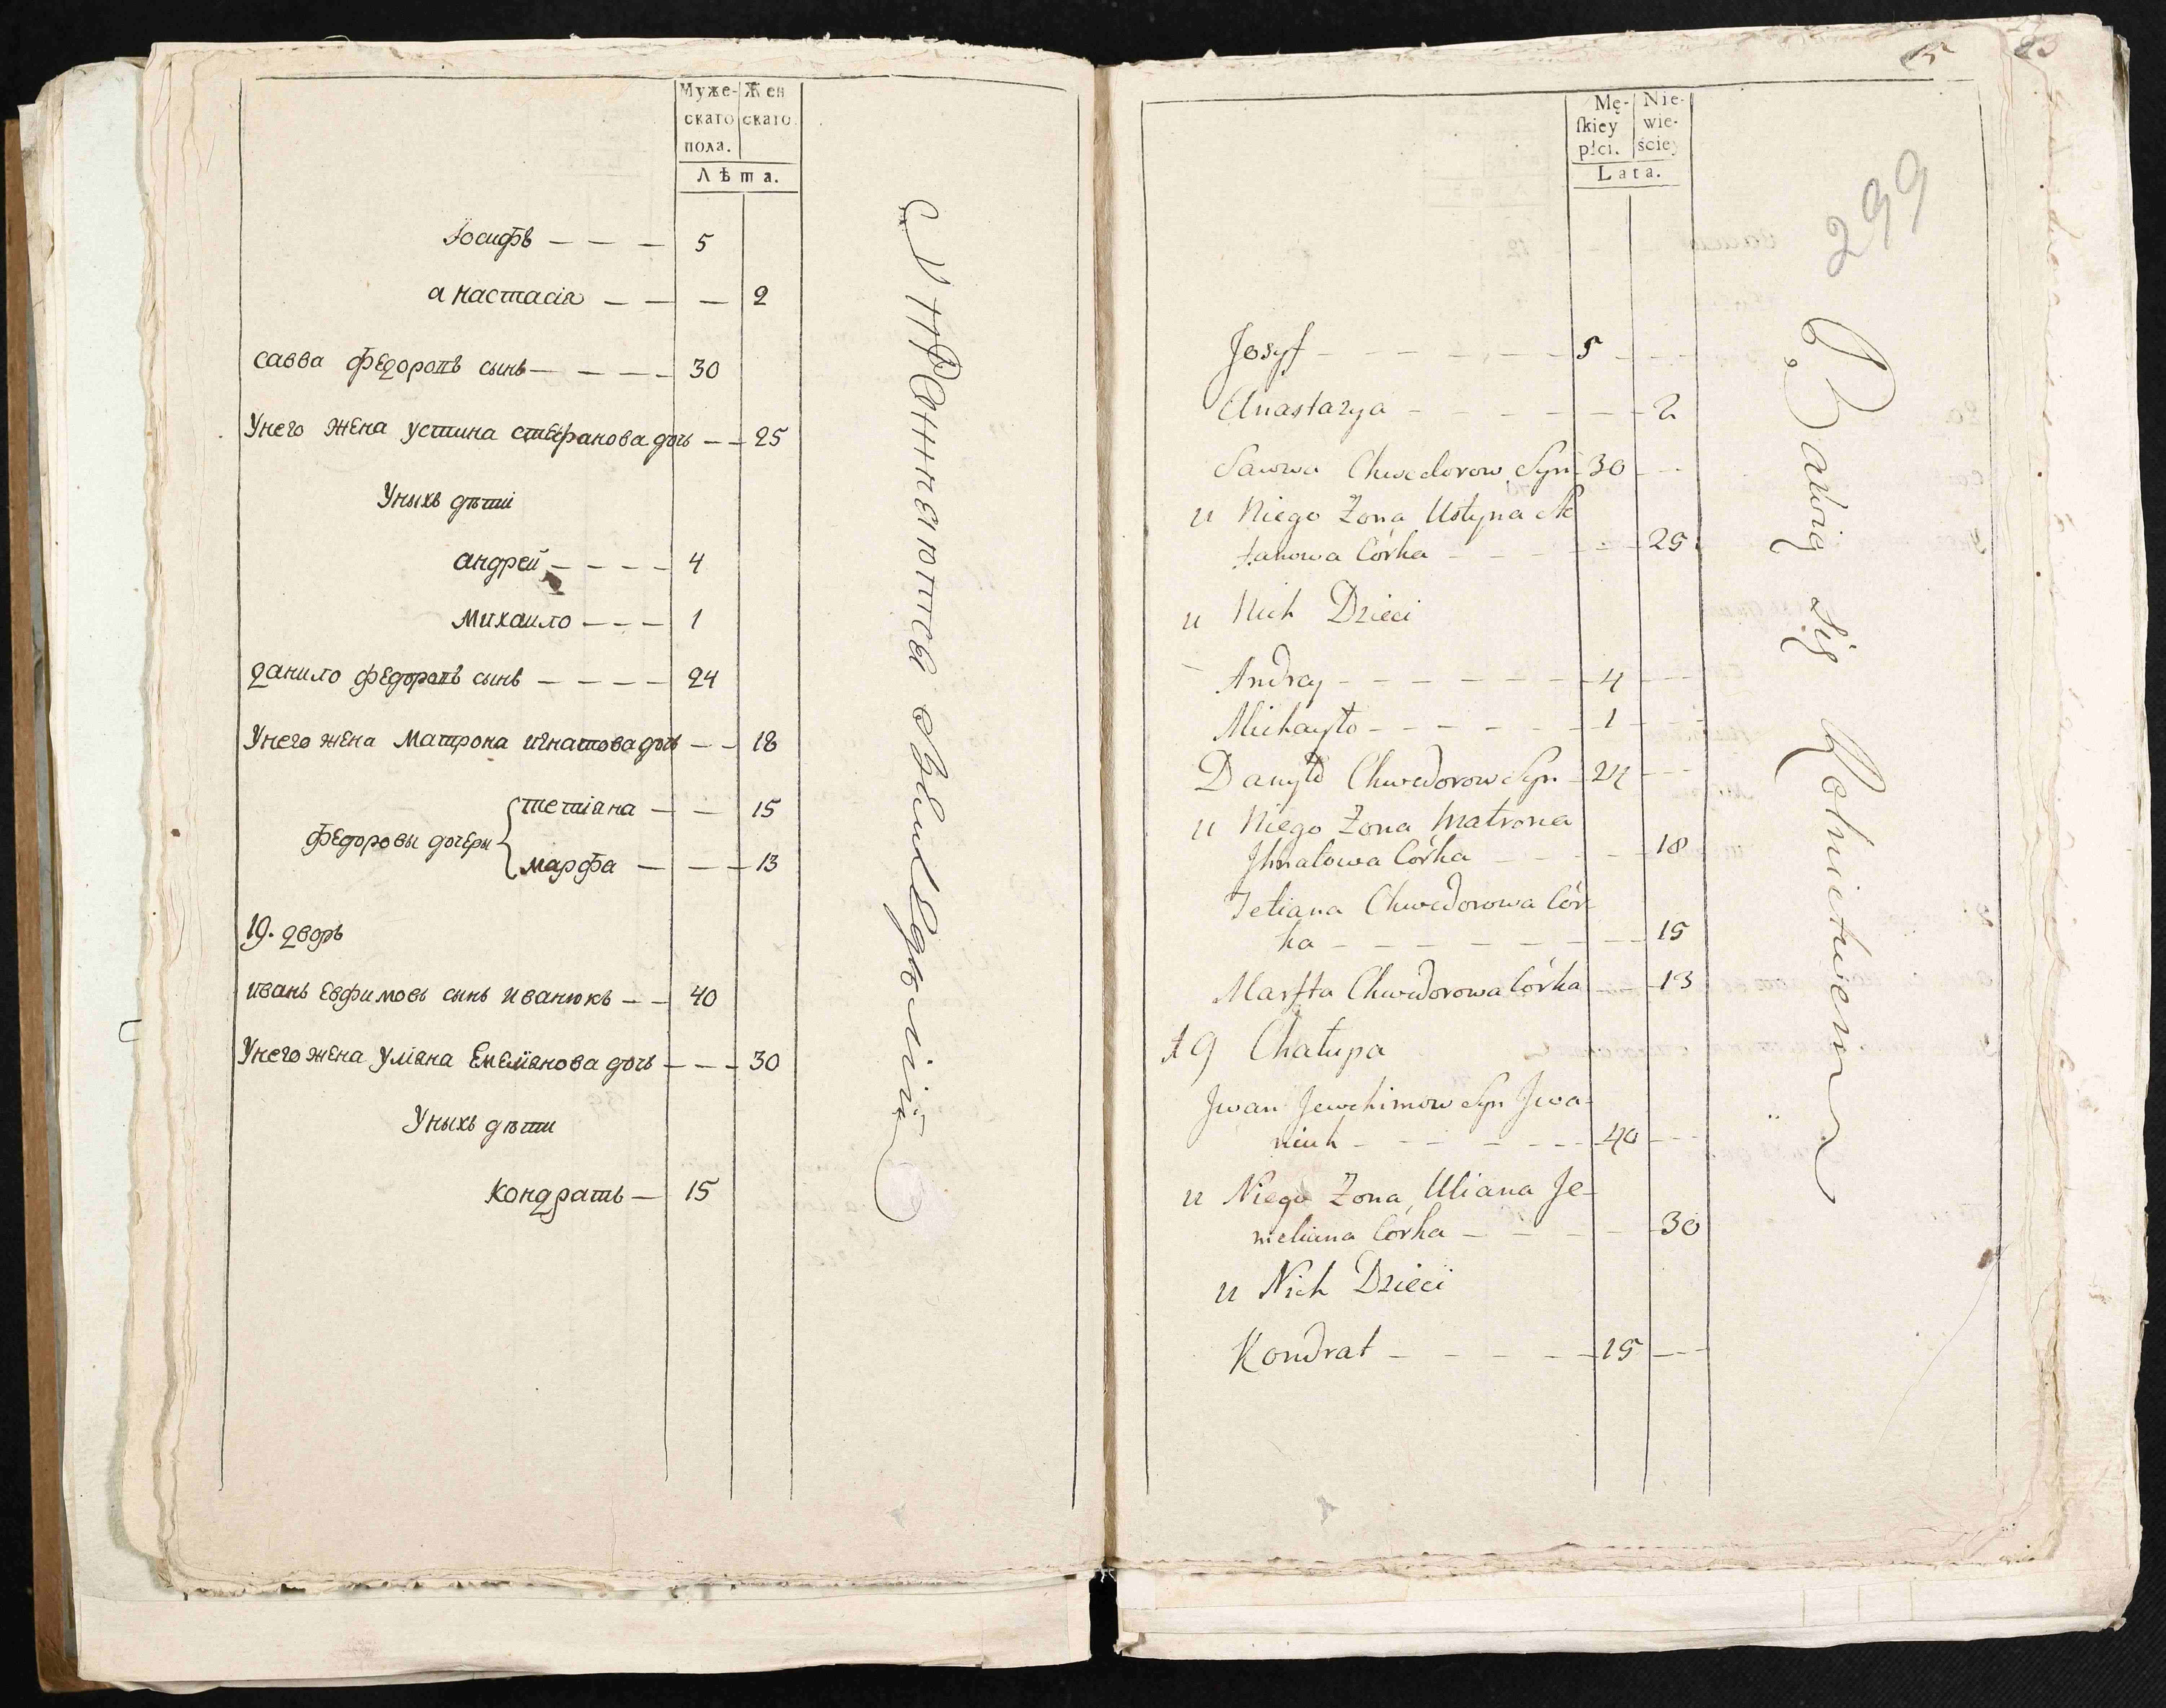 Муже-
скаго
пола.
Жен
скаго.
Лѣта.
Iосифъ — — — 5
анастасiя — — — 2
савва федоровъ сынъ — — — — 30
Унего жена устина стефанова дочь — — 25
Уныхъ дѣти
андрей — — — — 4
михаило — — — 1
данило федоровъ сынъ — — — — 24
Унего жена матрона игнатова дочь — — 18
федоровы дочери
тетiяна — — 15
марфа — — — 13
19. дворъ
иванъ евфимовъ сынъ иванюкъ — — 40
Унего жена улiяна емелiянова дочь — — — 30
Уныхъ дѣти
кондратъ — 15
15
83
Mę-
skiey
płci.
Nie-
wie-
ściey
Lata.
299
Josyf — — — — — — 5 — —
Anastazya — — — — — — 2
Sawwa Chwedorow Syn — 30 — —
u Niego Zona Ustyna Ste
fanowa Córka — — — — 25
u Nich Dzieci
Andrey — — — — — — 4 — —
Michayło — — — — — — 1 — —
Danyło Chwedorow Syn — 24 — —
u Niego Zona Matrona
Jhnatowa Córka — — — — 18
Tetiana Chwedorowa Cór-
ka — — — — — — — 15
Marfta Chwedorowa Córka — — 13
19 Chałupa
Jwan Jewchimow Syn Jwa-
niuk — — — — — — 40 — —
u Niego Zona Uliana Je-
meliana Córka — — — — 30
u Nich Dzieci
Kondrat — — — — — 15 — —
Bawią się Rolnictwem